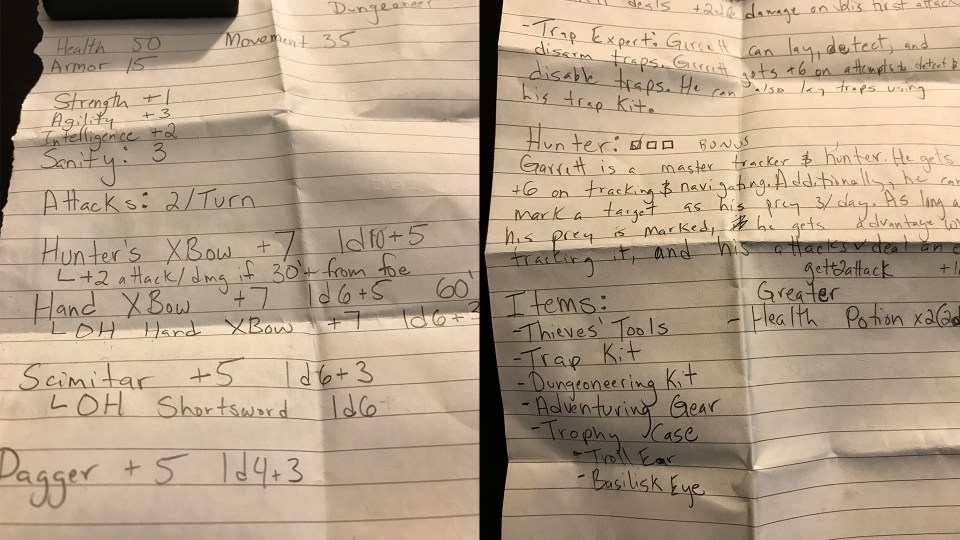 Dungeoneer
Health 50 Movement 35
Armor 15
Strength +1
Agility +3
Intelligence +2
Sanity: 3
Attacks: 2/Turn
Hunter's XBow +7 1d10+5
+2 attack/dmg if 30'+ from foe
Hand XBow +7 1d6+5 60'
OH Hand XBow +7 1d6+
Scimitar +5 1d6+3
OH Shortsword 1d6
Dagger +5 1d4+3
deals damage on his first attack
- Trap Expert: Garrett can lay, detect, and
disarm traps. Garrett gets +6 on attempts to detect
disable traps. He can also lay traps using
his trap Kit.
Hunter: BONUS
Garrett is a master tracker & hunter. He gets
+6 on tracking & navigating. Additionally, he can
mark a target as his prey 3/day. As long a
his prey is marked, he gets advantage
tracking it, and his attacks deal an
get +2 attack
Items: Greater
- Thieves' Tools - Health Potion x2
- Trap Kit
- Dungeoneering Kit
- Adventuring Gear
- Trophy Case
- Troll Ear
- Basilisk Eye